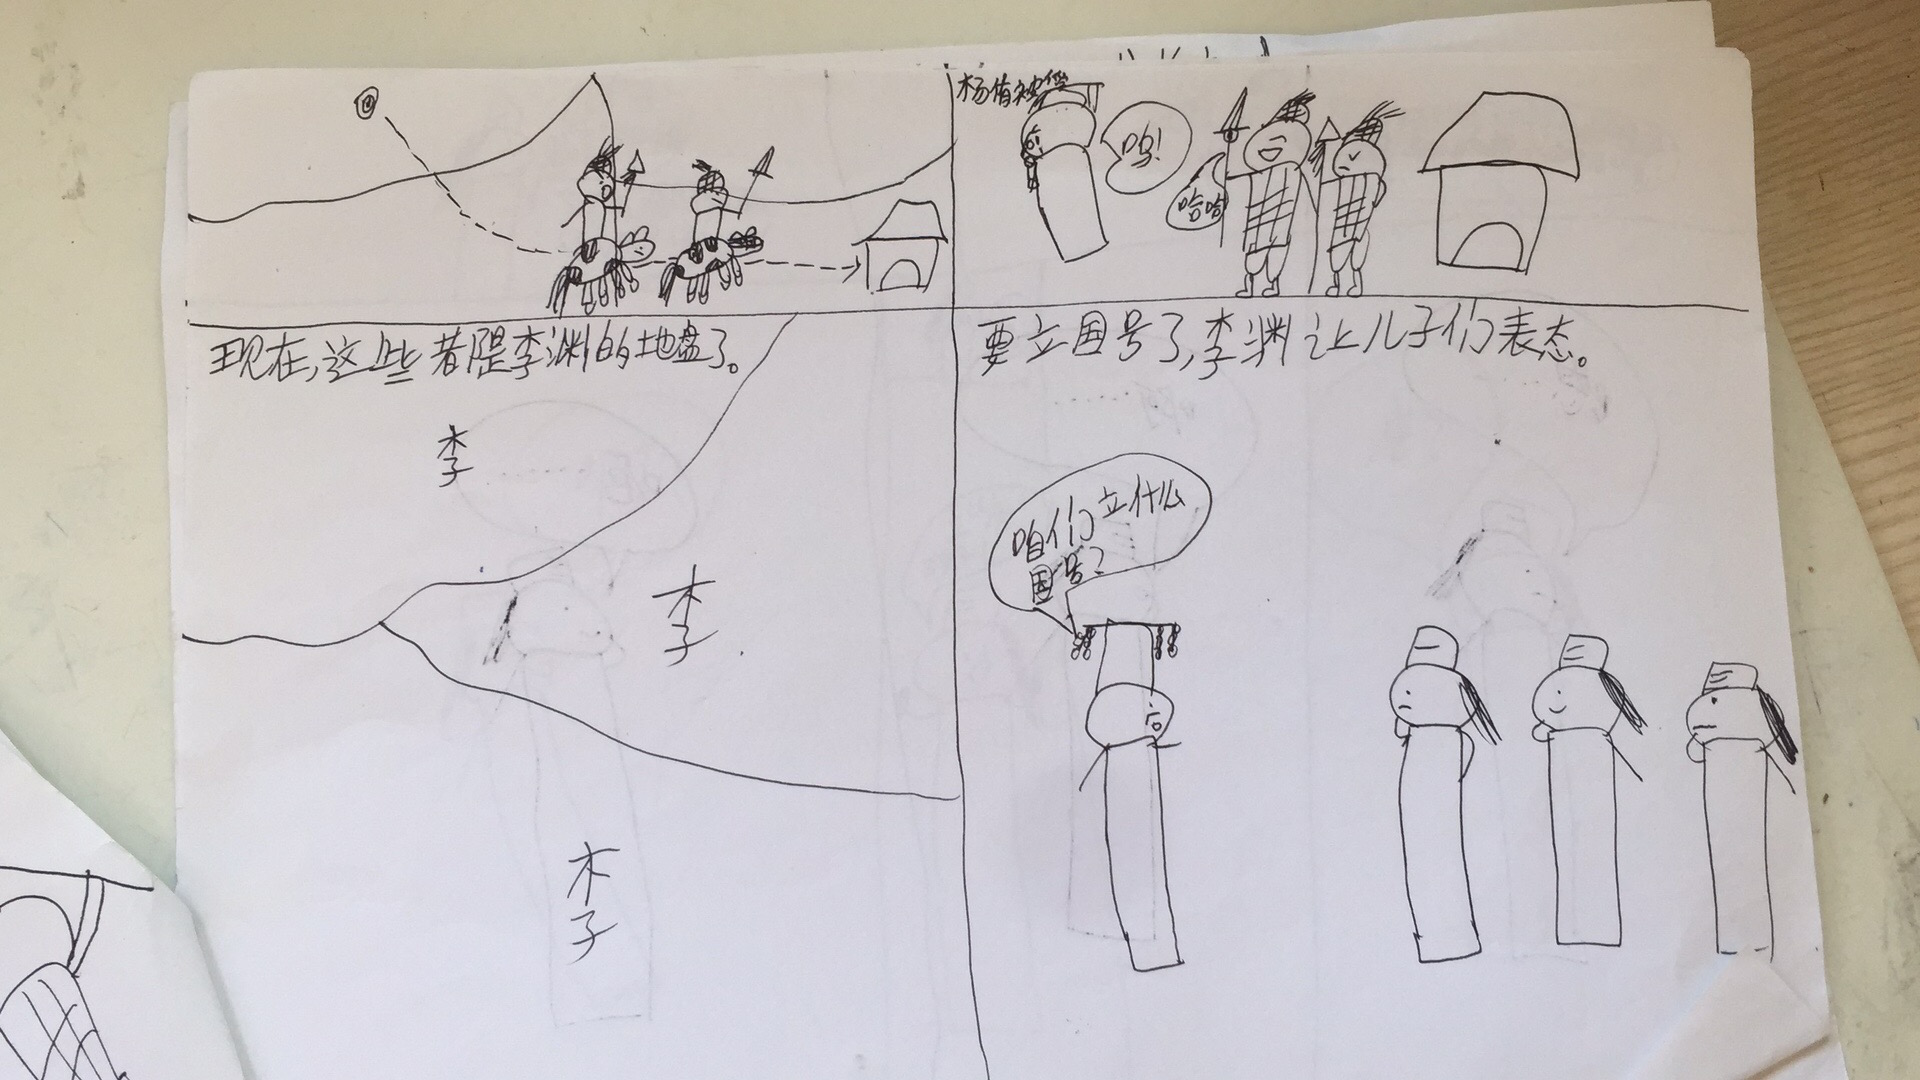 杨侑被俘
呜!
哈哈
现在,这些都是李渊的地盘了。
李
李
李
要立国号了,李渊让儿子们表态。
咱们立什么
国号?